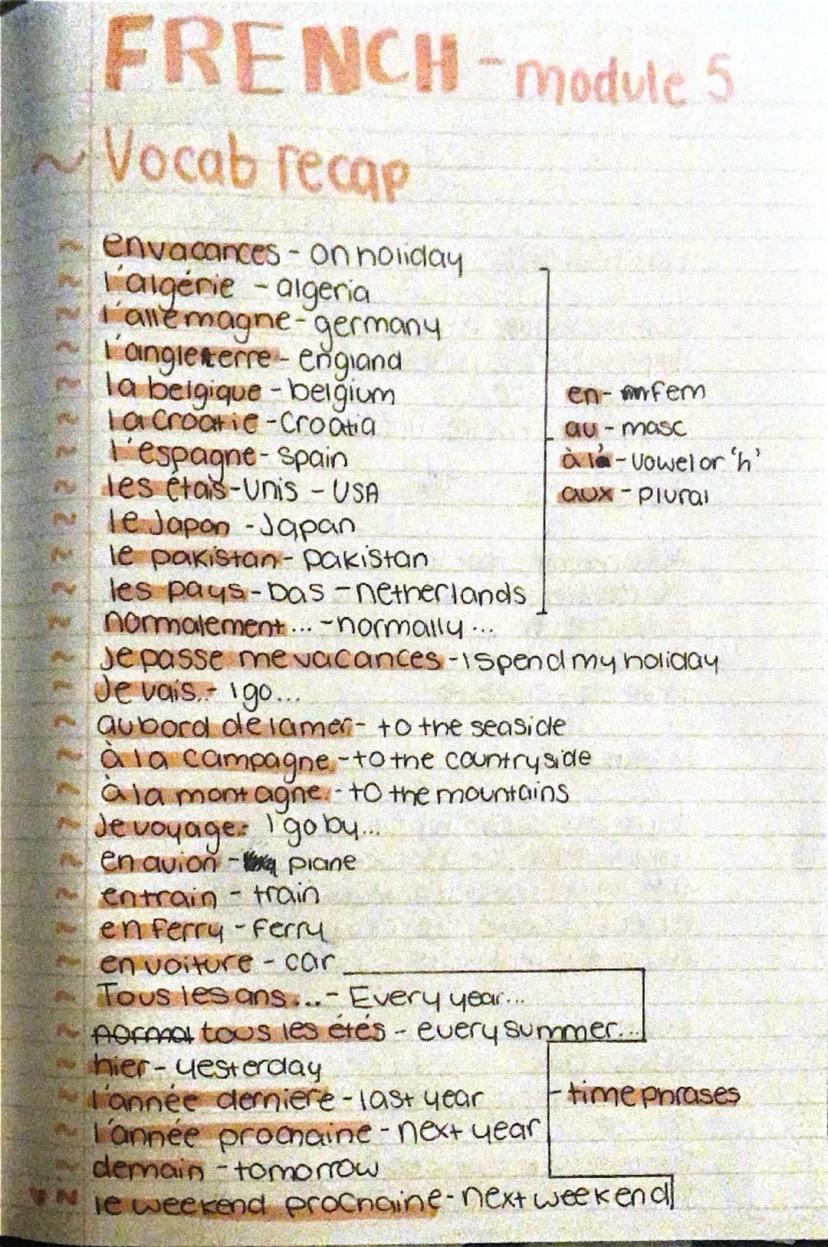 FRENCH - module 5
~ Vocab recap
en vacances - on holiday
l'algérie - algeria
l'allemagne - germany
l'angleterre - england
la belgique - belgium
la Croatie - Croatia
l'espagne - spain
les étais-unis - USA
le Japon - Japan
le pakistan - pakistan
les pays-bas - netherlands
en - fem
au - masc
à la - vowel or 'h'
aux - plural
normalement... - normally...
Je passe me vacances - I spend my holiday
Je vais - I go...
au bord de la mer - to the seaside
à la campagne - to the countryside
à la montagne - to the mountains
Je voyage: I go by...
en avion - plane
en train - train
en ferry - ferry
en voiture - car
Tous les ans... - Every year...
normal tous les étés - every summer...
hier - yesterday
l'année derniere - last year
l'année prochaine - next year
demain - tomorrow
le weekend prochaine - next weekend
- time phrases